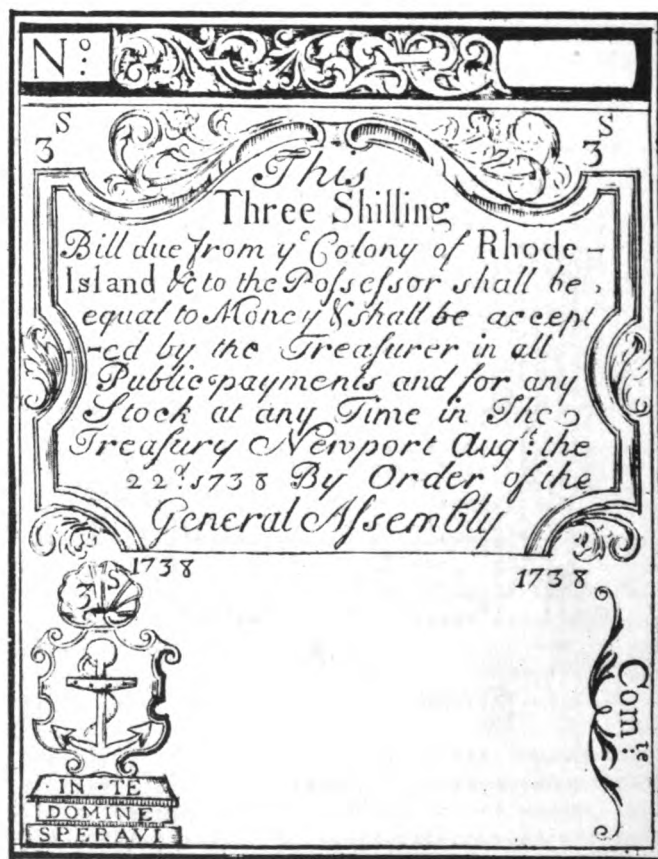 Nº:
3ˢ 3ˢ
This
Three Shilling
Bill due from yᵉ Colony of Rhode-
Island &c to the Poſseſsor shall be
equal to Money & shall be accept
-ed by the Treaſurer in all
Public payments and for any
Stock at any Time in The
Treaſury Newport Augˢᵗ: the
22ᵈ: 1738 By Order of the
General Aſsembly
1738 1738
3 S
IN · TE
DOMINE
SPERAVI
Comᵗᵉ: